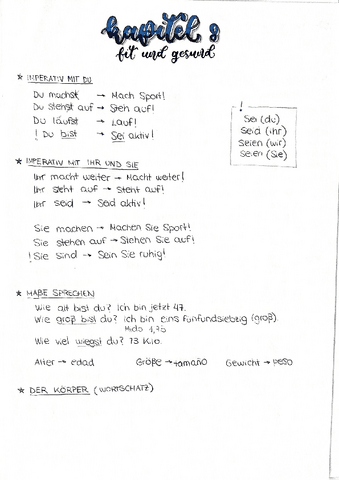 Kapitel 8
fit und gesund
* IMPERATIV MIT DU
Du machst → Mach Sport!
Du stehst auf → Steh auf!
Du läufst → Lauf!
! Du bist → Sei aktiv!
!
Sei (du)
Seid (ihr)
Seien (wir)
Seien (Sie)
* IMPERATIV MIT IHR UND SIE
Ihr macht weiter → Macht weiter!
Ihr steht auf → Steht auf!
Ihr seid → Seid aktiv!
Sie machen → Machen Sie Sport!
Sie stehen auf → Stehen Sie auf!
! Sie sind → Sein Sie ruhig!
* MAßE SPRECHEN
Wie alt bist du? Ich bin jetzt 47.
Wie groß bist du? Ich bin eins fünfundsiebzig (groß).
Mido 1,75
Wie viel wiegst du? 73 Kilo.
Alter → edad Größe → tamaño Gewicht → peso
* DER KÖRPER (WORTSCHATZ)